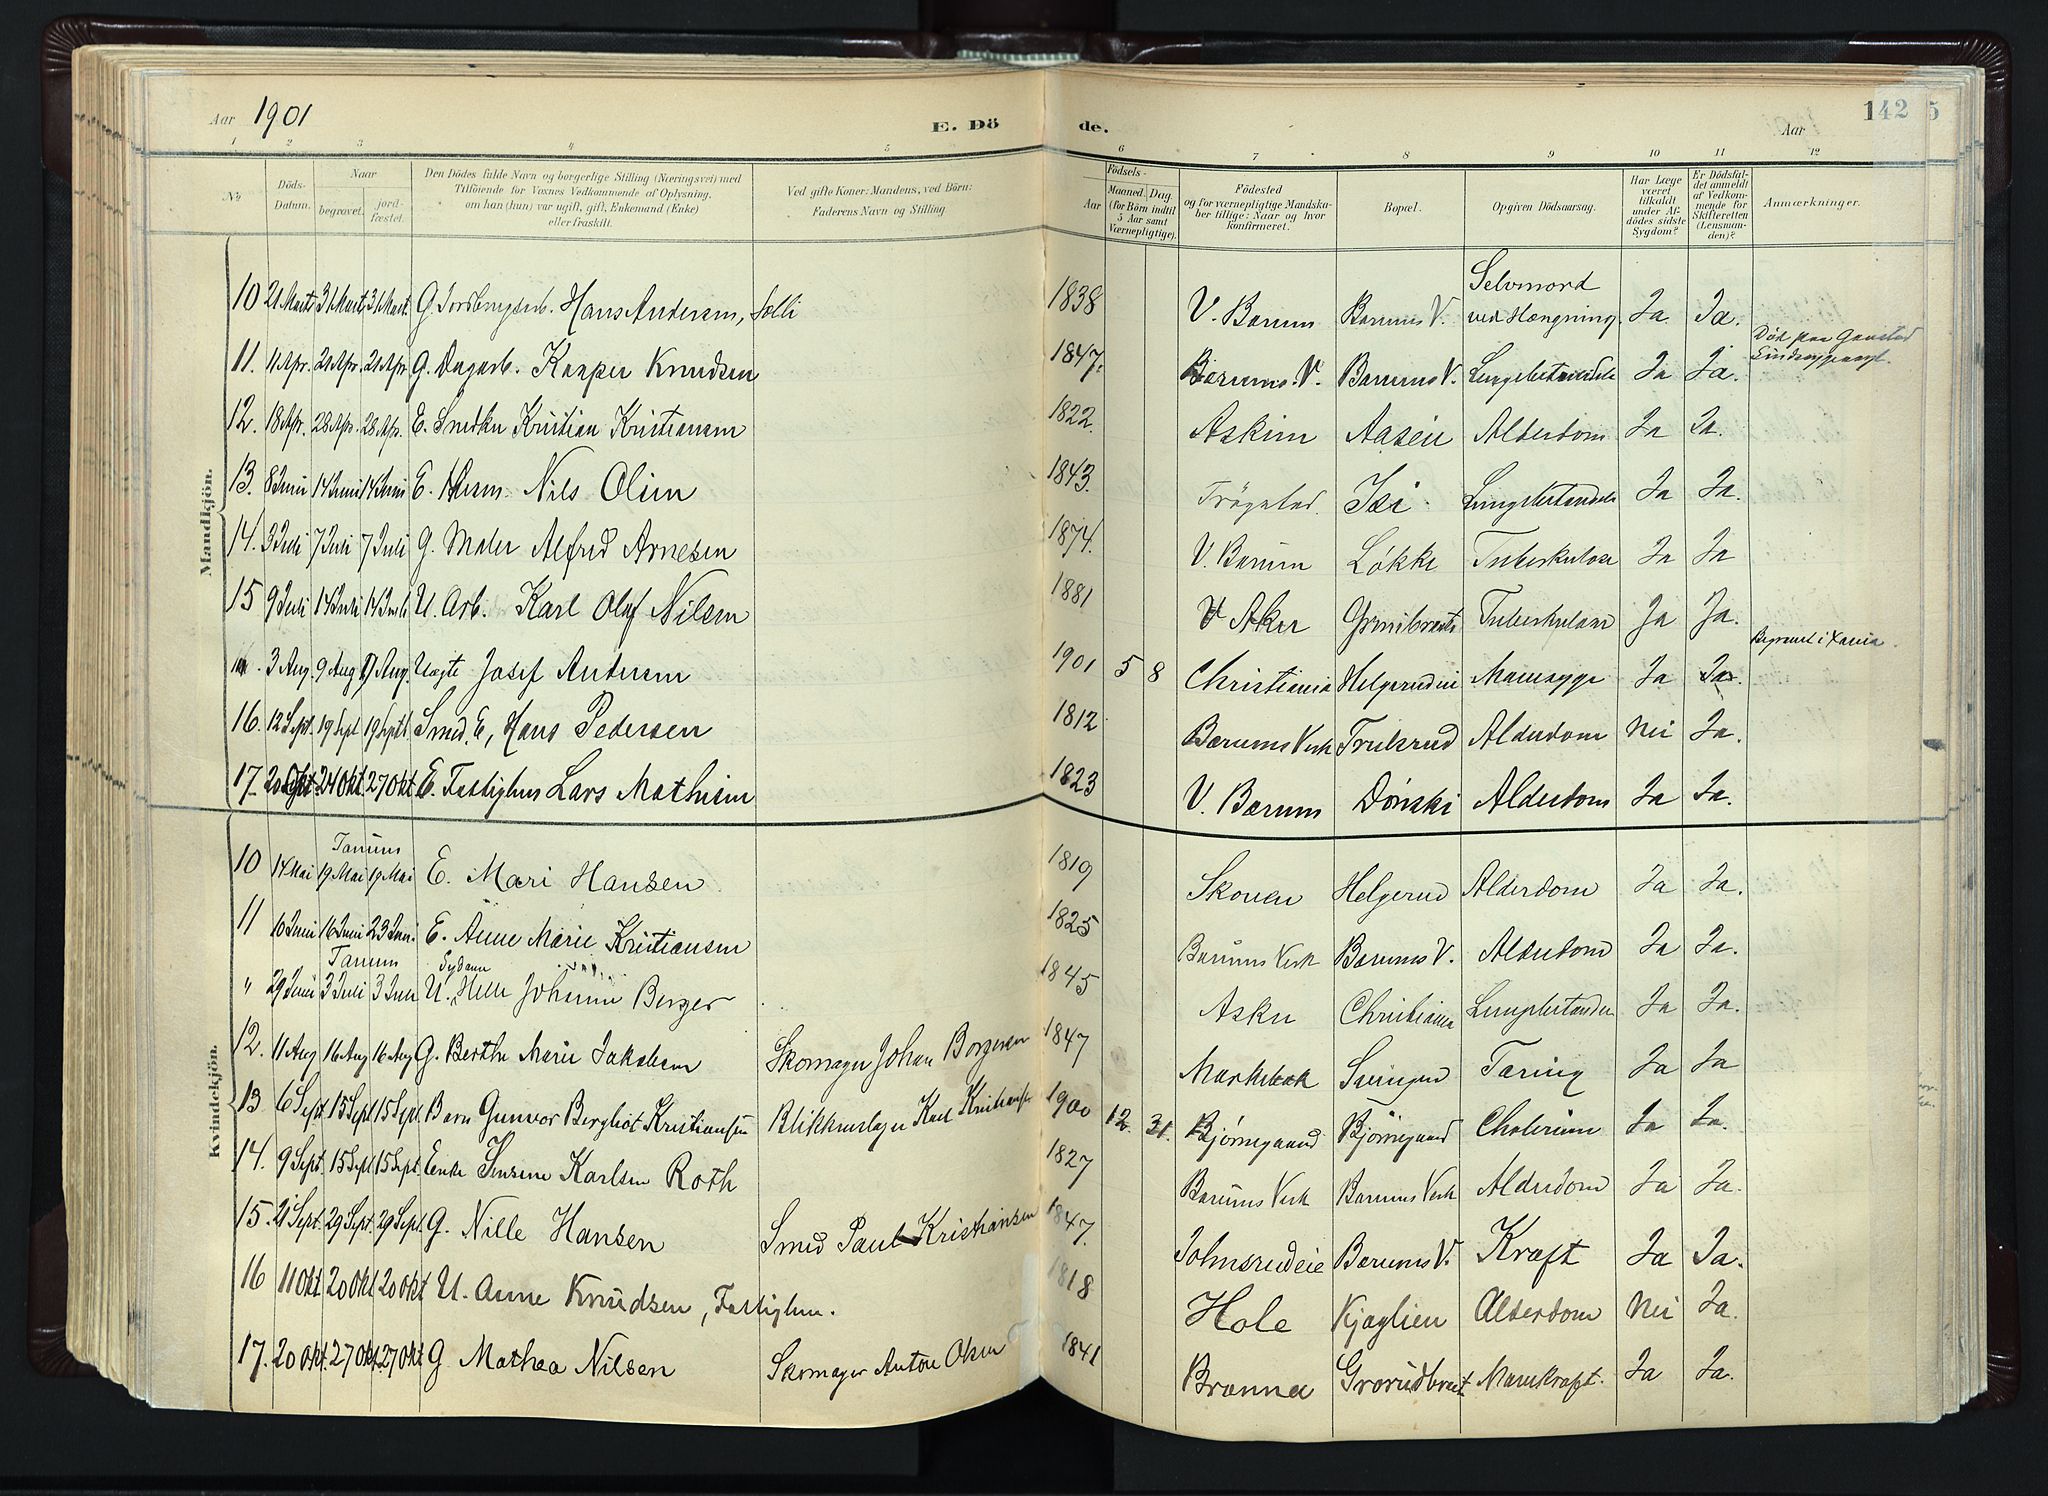 Aar 1901
E. Dö de.
Aar
142 5
1 2 3 4 5 6 7 8 9 10 11 12
Nr.
Döds-Datum.
Naar
begravet.
jord-fæstet.
Den Dödes fulde Navn og borgerlige Stilling (Næringsvei) med
Tilföiende for Voxnes Vedkommende af Oplysning,
om han (hun) var ugift, gift, Enkemand (Enke)
eller fraskilt.
Ved gifte Koner: Mandens, ved Börn:
Faderens Navn og Stilling
Födsels-
Aar
Maaned. Dag.
(for Börn indtil
5 Aar samt
Værnepligtige).
Födested
og for værnepligtige Mandska-
ber tillige: Naar og hvor
konfirmeret.
Bopæl.
Opgiven Dödsaarsag.
Har Læge
været
tilkaldt
under Af-
dödes sidste
Sygdom?
Er Dödsfal-
det anmeldt
af Vedkom-
mende for
Skifteretten
(Lensman-
den)?
Anmærkninger.
Mandkjön.
10 21 Marts 31 Marts 31 Mart. G. Hans Andersen, Solli 1838 V. Bærum Bærums V. Selvmord ved Hængning Ja. Ja.
11. 11 Apr. 21 Apr. 21 Apr. G. Dagarb. Kasper Knudsen 1847. Bærums V. Bærums V. Lungebetændelse Ja Ja. Död paa Gaustad Sindssygeasyl.
12. 18 Apr. 28 Apr. 28 Apr. E. Kristian Kristiansen 1822. Askim Aasen Alderdom Ja Ja.
13. 8 Juni 14 Juni 14 Juni E. Nils Olsen 1843. Trögstad. Isi. Lungebetændelse Ja Ja.
14. 3 Juli 7 Juli 7 Juli G. Maler Alfred Arnesen 1874. V. Bærum Løkke Tuberkulose Ja Ja
15 9 Juli 14 Juli 14 Juli U. Arb. Karl Olaf Nilsen 1881 V Aker Grinibraaten Tuberkulose Ja Ja.
3 Aug. 9 Aug 9 Aug. Uægte Josef Andersen 1901 5 8 Christiania Helgerudeie Mavesyge Ja Ja. Begravet i Xania.
16. 12 Sept. 19 Sept 19 Septb. Smed. E, Hans Pedersen 1812 Bærums Verk Trulsrud Alderdom Nei Ja.
17. 20 Okt. 24 Okt 27 Okt E. Fattiglem Lars Mathisen 1823 V. Bærum Dönski Alderdom Ja Ja.
Kvindekjön.
Tanum
10 14 Mai 19 Mai 19 Mai E. Mari Hansen 1819 Skouen Helgerud Alderdom Ja Ja.
11 10 Juni 16 Juni 23 Juni. E. Anne Marie Kristiansen 1825 Bærums Verk Bærums V. Alderdom Ja Ja.
Tanum
" 29 Juni 3 Juli 3 Juli U. Johanne Berger 1845 Asker Christiania Lungebetændelse Ja Ja.
12. 11 Aug 16 Aug 16 Aug G. Berthe Marie Jakobsen Skomager Johan Borgersen 1847 Markebæk Tæring Ja Ja
13 6 Sept 15 Sept 15 Sept. Barn Gunvor Bergliot Kristiansen Blikkenslager Karl Kristiansen 1900 12. 31. Bjørnegaard Bjørnegaard Cholerine Ja Ja.
14. 9 Sept. 15 Sept 15 Sept. Enke Karlsen Roth 1827 Bærums Verk Bærums Verk Alderdom Ja Ja.
15. 21 Sept. 29 Sept. 29 Sept. G. Nille Hansen Smed Paul Kristiansen 1847. Johnsrudeie Bærums V. Kræft Ja Ja.
16 11 Okt. 20 Okt 20 Okt U. Anne Knudsen, Fattiglem. 1818 Hole Kjaglien Alderdom Nei Ja.
17. 20 Okt. 27 Okt. 27 Okt G. Mathea Nilsen Skomager Anton Olsen 1841 Brænna Grorudbraat Mavekræft. Ja Ja.